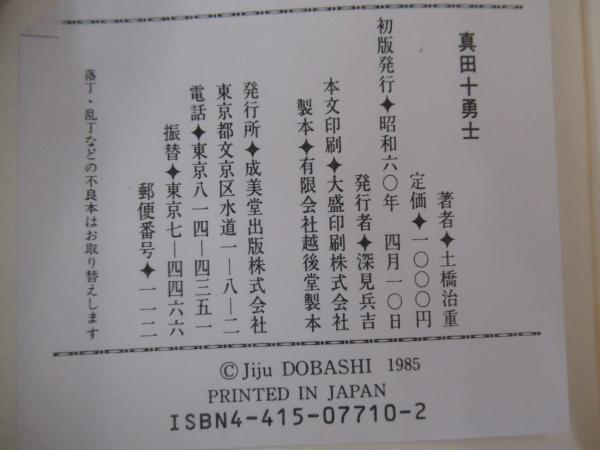 真田十勇士
著者✦土橋治重
定価✦一〇〇〇円
初版発行✦昭和六〇年 四月一〇日
発行者✦深見兵吉
本文印刷✦大盛印刷株式会社
製本✦有限会社越後堂製本
発行所✦成美堂出版株式会社
東京都文京区水道一—八—二
電話✦東京八一四—四三五一
振替✦東京七—四四六六
郵便番号✦一一二
落丁・乱丁などの不良本はお取り替えします
©Jiju DOBASHI 1985
PRINTED IN JAPAN
ISBN4-415-07710-2